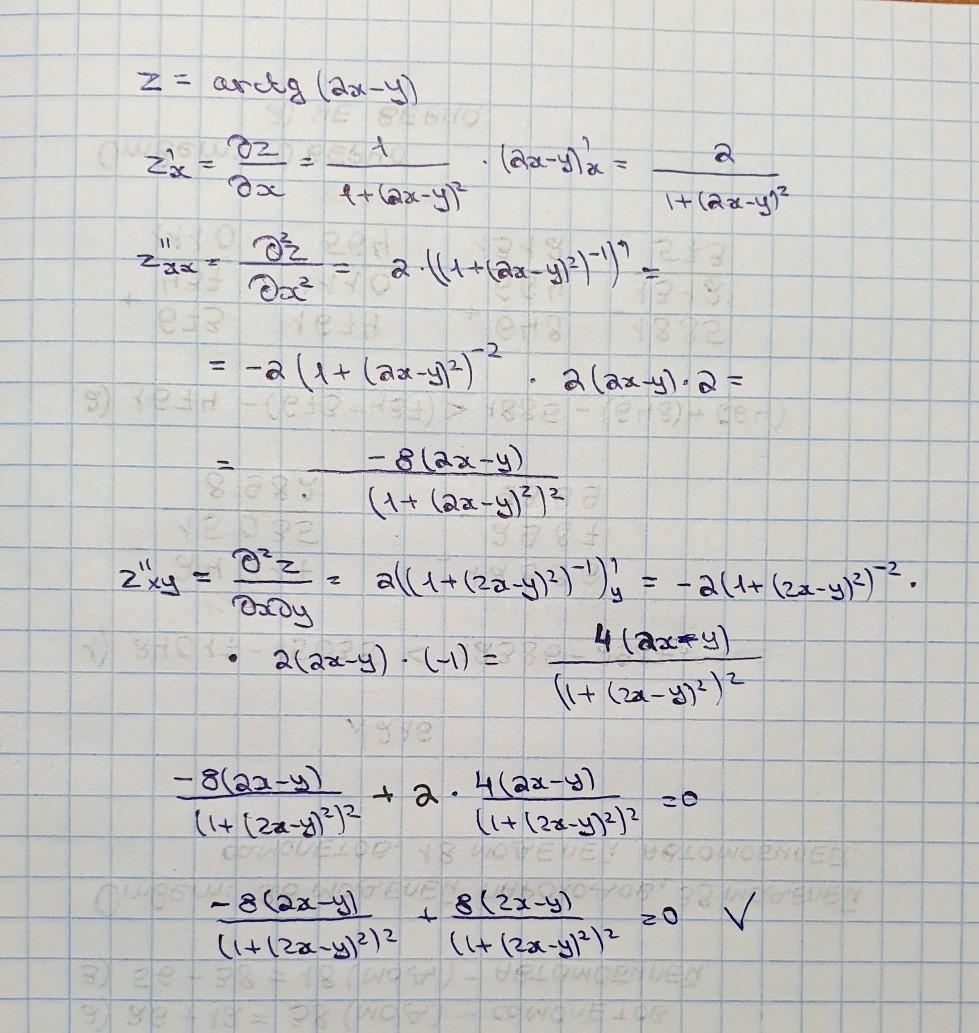 z = arctg (2x-y)
z'x = ∂z/∂x = 1/(1+(2x-y)²) · (2x-y)'x = 2/(1+(2x-y)²)
z''xx = ∂²z/∂x² = 2·((1+(2x-y)²)⁻¹)' =
= -2(1+(2x-y)²)⁻² · 2(2x-y)·2 =
= -8(2x-y)/(1+(2x-y)²)²
z''xy = ∂²z/∂x∂y = 2((1+(2x-y)²)⁻¹)'y = -2(1+(2x-y)²)⁻² ·
· 2(2x-y)·(-1) = 4(2x-y)/(1+(2x-y)²)²
-8(2x-y)/(1+(2x-y)²)² + 2 · 4(2x-y)/(1+(2x-y)²)² =0
-8(2x-y)/(1+(2x-y)²)² + 8(2x-y)/(1+(2x-y)²)² =0 √